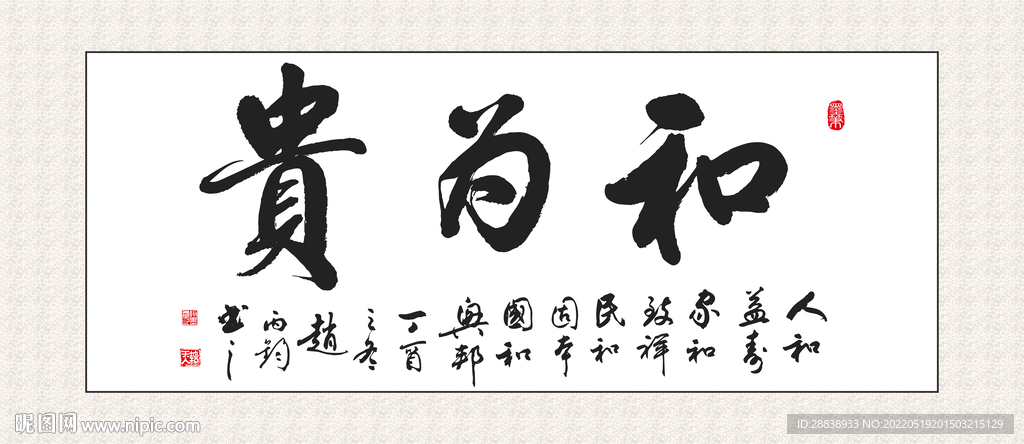 和为貴
人和
益寿
家和
致祥
民和
固本
國和
興邦
丁酉
之冬
趙
丙钧
书之
昵图网 www.nipic.com
ID:28838933 NO:20220519201503215129